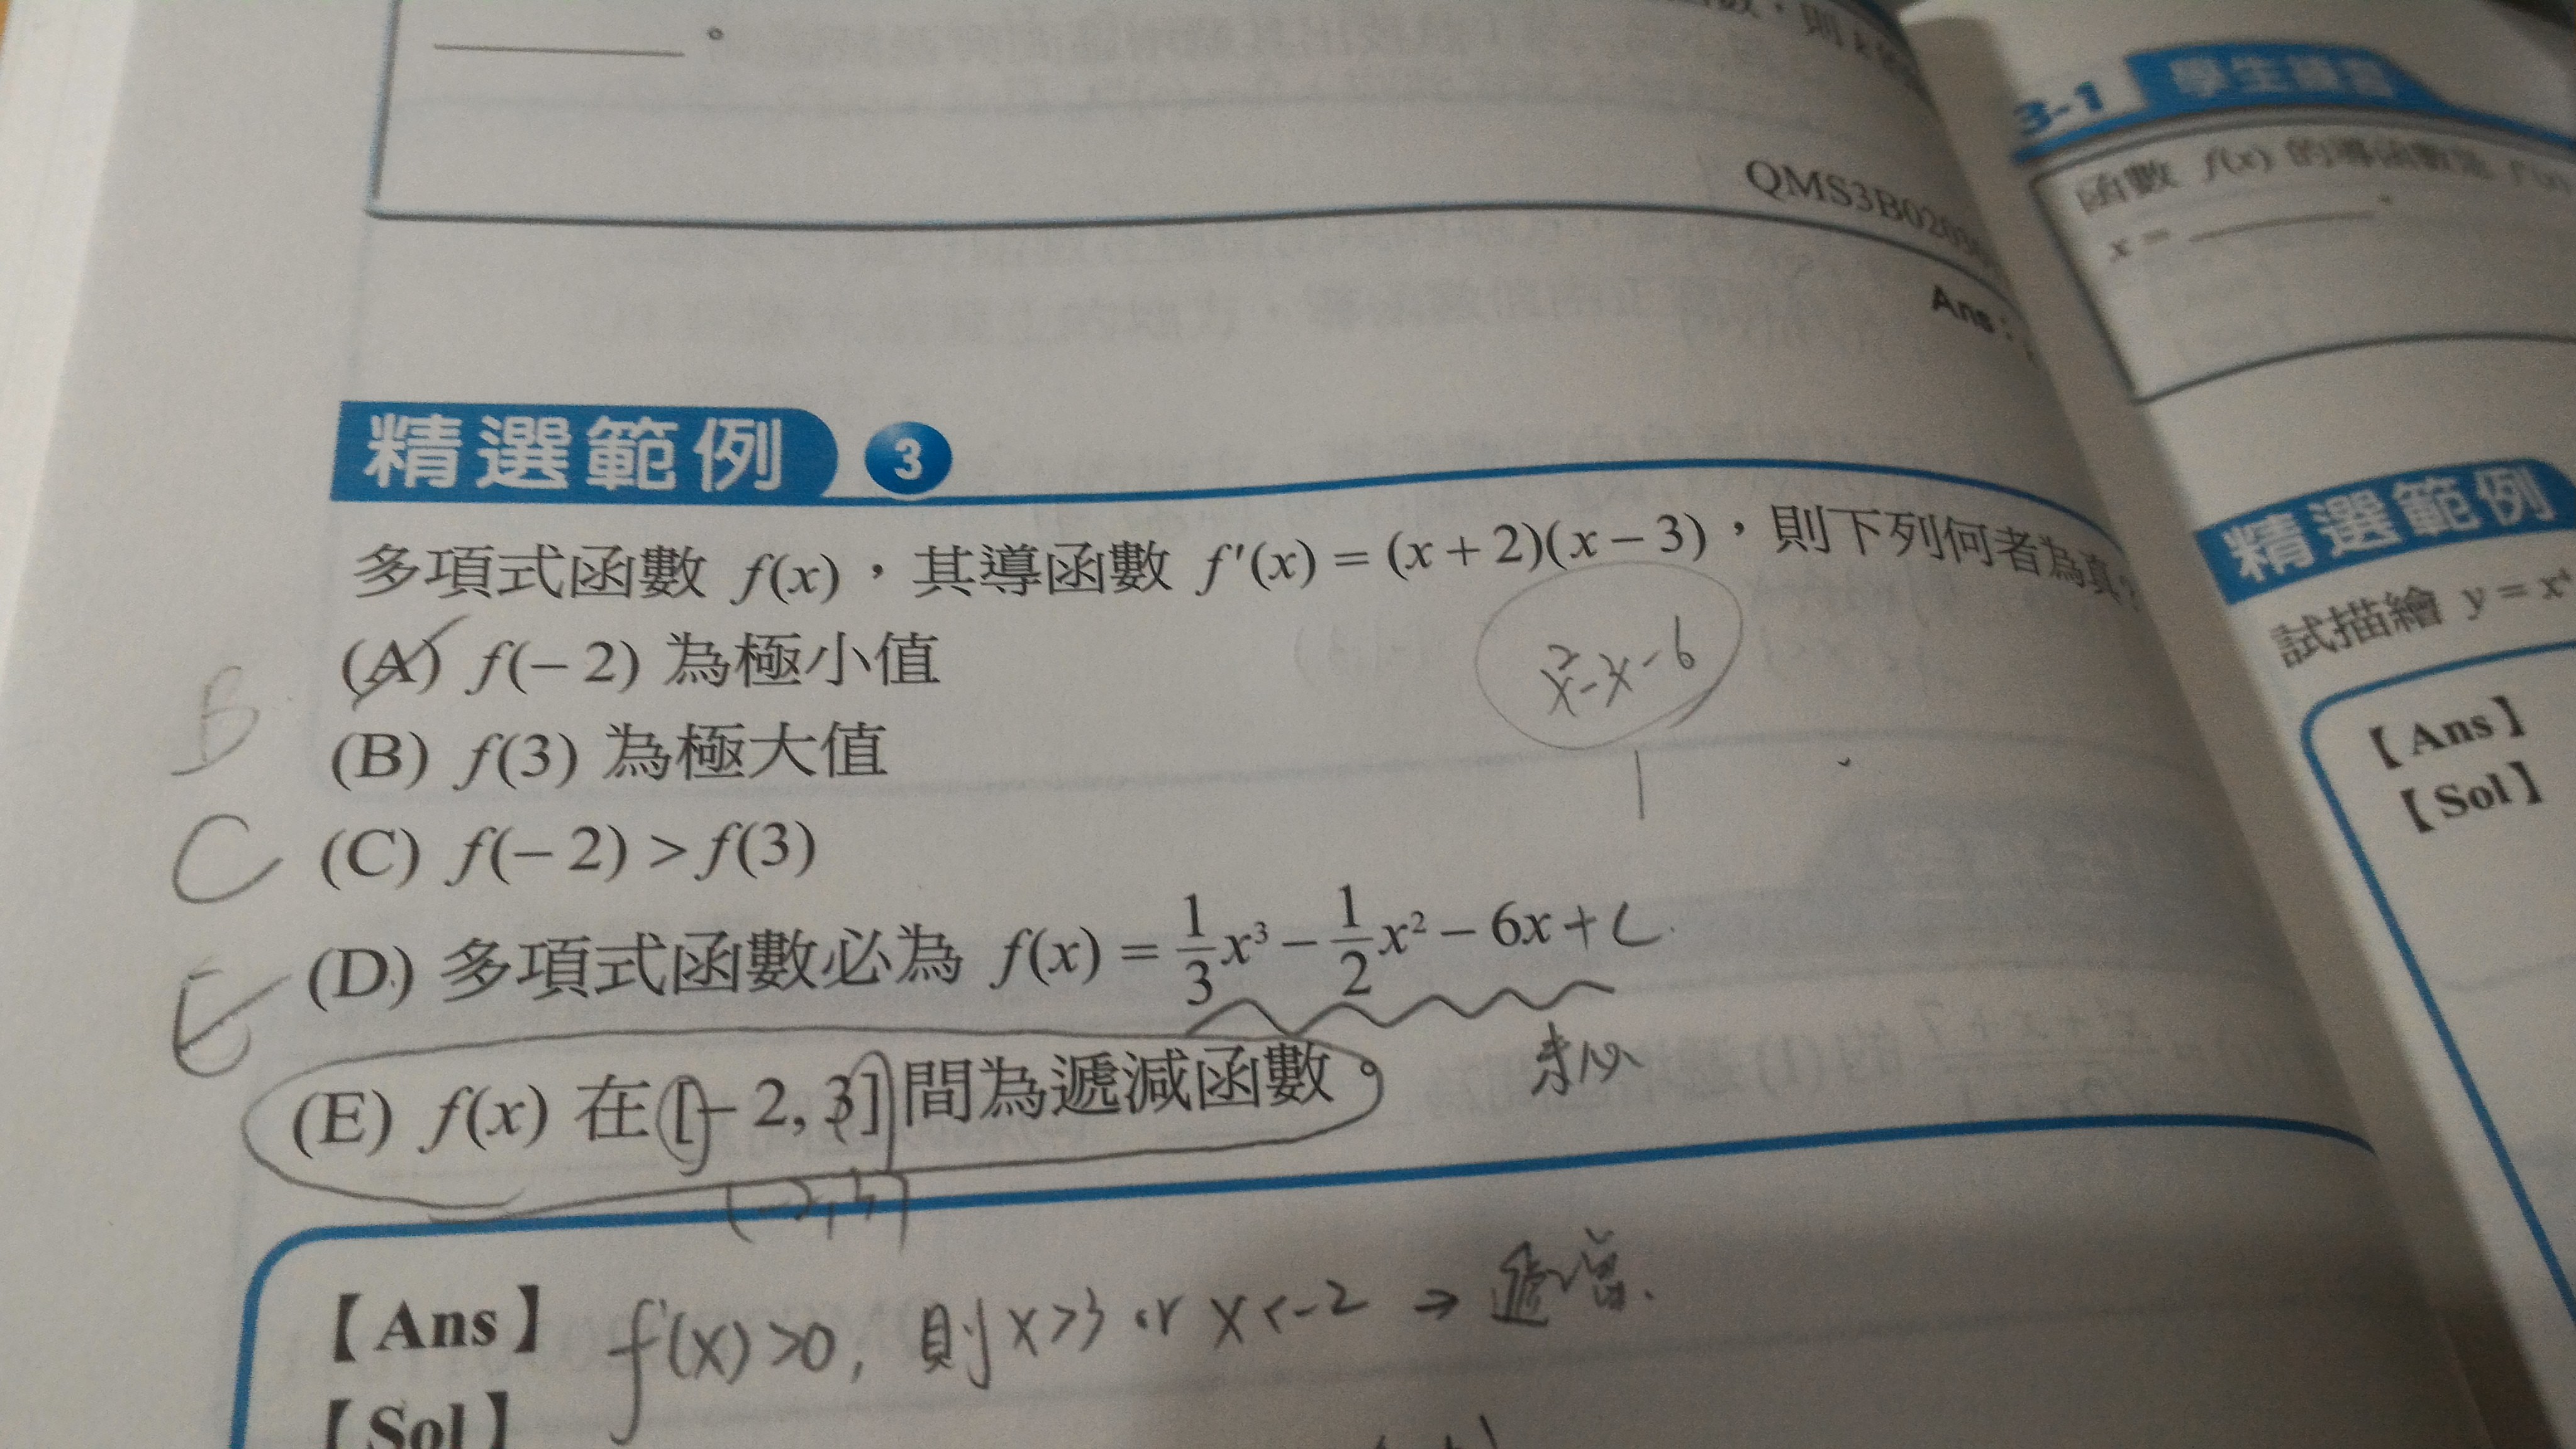 。
數，則 k
QMS3B020
Ans：
精選範例 3
多項式函數 f(x)，其導函數 f'(x) = (x + 2)(x − 3)，則下列何者為真？
x²-x-6
(A) f(− 2) 為極小值
B
(B) f(3) 為極大值
C
(C) f(− 2) > f(3)
(D) 多項式函數必為 f(x) = 1/3 x³ − 1/2 x² − 6x + C
E
未必
(E) f(x) 在 [− 2, 3] 間為遞減函數。
【Ans】 f'(x)>0, 則 x>3 or x<-2 → 遞增.
【Sol】
3-1 學生練習
函數 f(x) 的導函數是
x =
精選範例
試描繪 y = x⁴
【Ans】
【Sol】